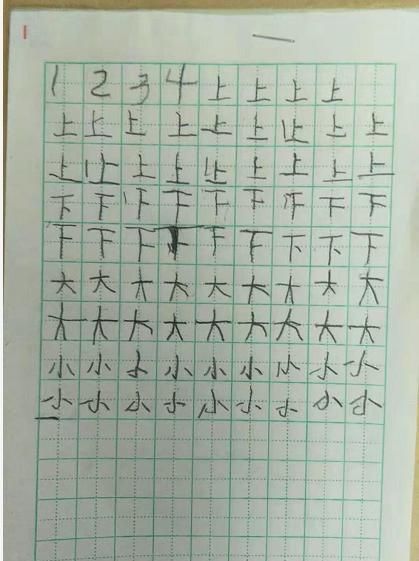 1 2 3 4 上 上 上 上
上 上 上 上 上 上 上 上 上
上 上 上 上 上 上 上 上 上
下 下 下 下 下 下 下 下 下
下 下 下 下 下 下 下 下 下
大 大 大 大 大 大 大 大 大
大 大 大 大 大 大 大 大 大
小 小 小 小 小 小 小 小 小
小 小 小 小 小 小 小 小 小